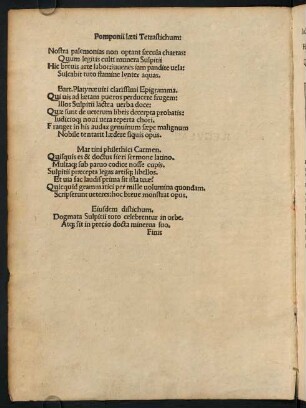 Pomponii læti Tetrastichum:
Nostra palæmonias non optant sæcula chartas:
Quum legitis culti munera Sulpitii
Hic breuis arte labor: iuuenes iam pandite uela:
Sulcabit toto flamine lenter aquas.
Bart. Platynæ uiri clarissimi Epigramma.
Qui uis ad lætam pueros perducere frugem:
Illos Sulpitii lactea uerba doce:
Quæ sunt de ueterum libris decerpta probatis:
Iudicioq; noui uera reperta chori.
Franget in his audax genuinum sæpe malignum
Nobile tentarit lædere siquis opus.
Martini philethici Carmen.
Quisquis es & doctus fieri sermone latino.
Multaq; sub paruo codice nosse cupis.
Sulpitii præcepta legas artisq; libellos.
Et uia sac laudis prima sit ista tuæ.
Quicquid grammatici per mille uolumina quondam.
Scripserunt ueteres: hoc breue monstrat opus.
Eiusdem distichum.
Dogmata Sulpitii toto celebrentur in orbe.
Atq; sit in precio docta minerua suo.
Finis